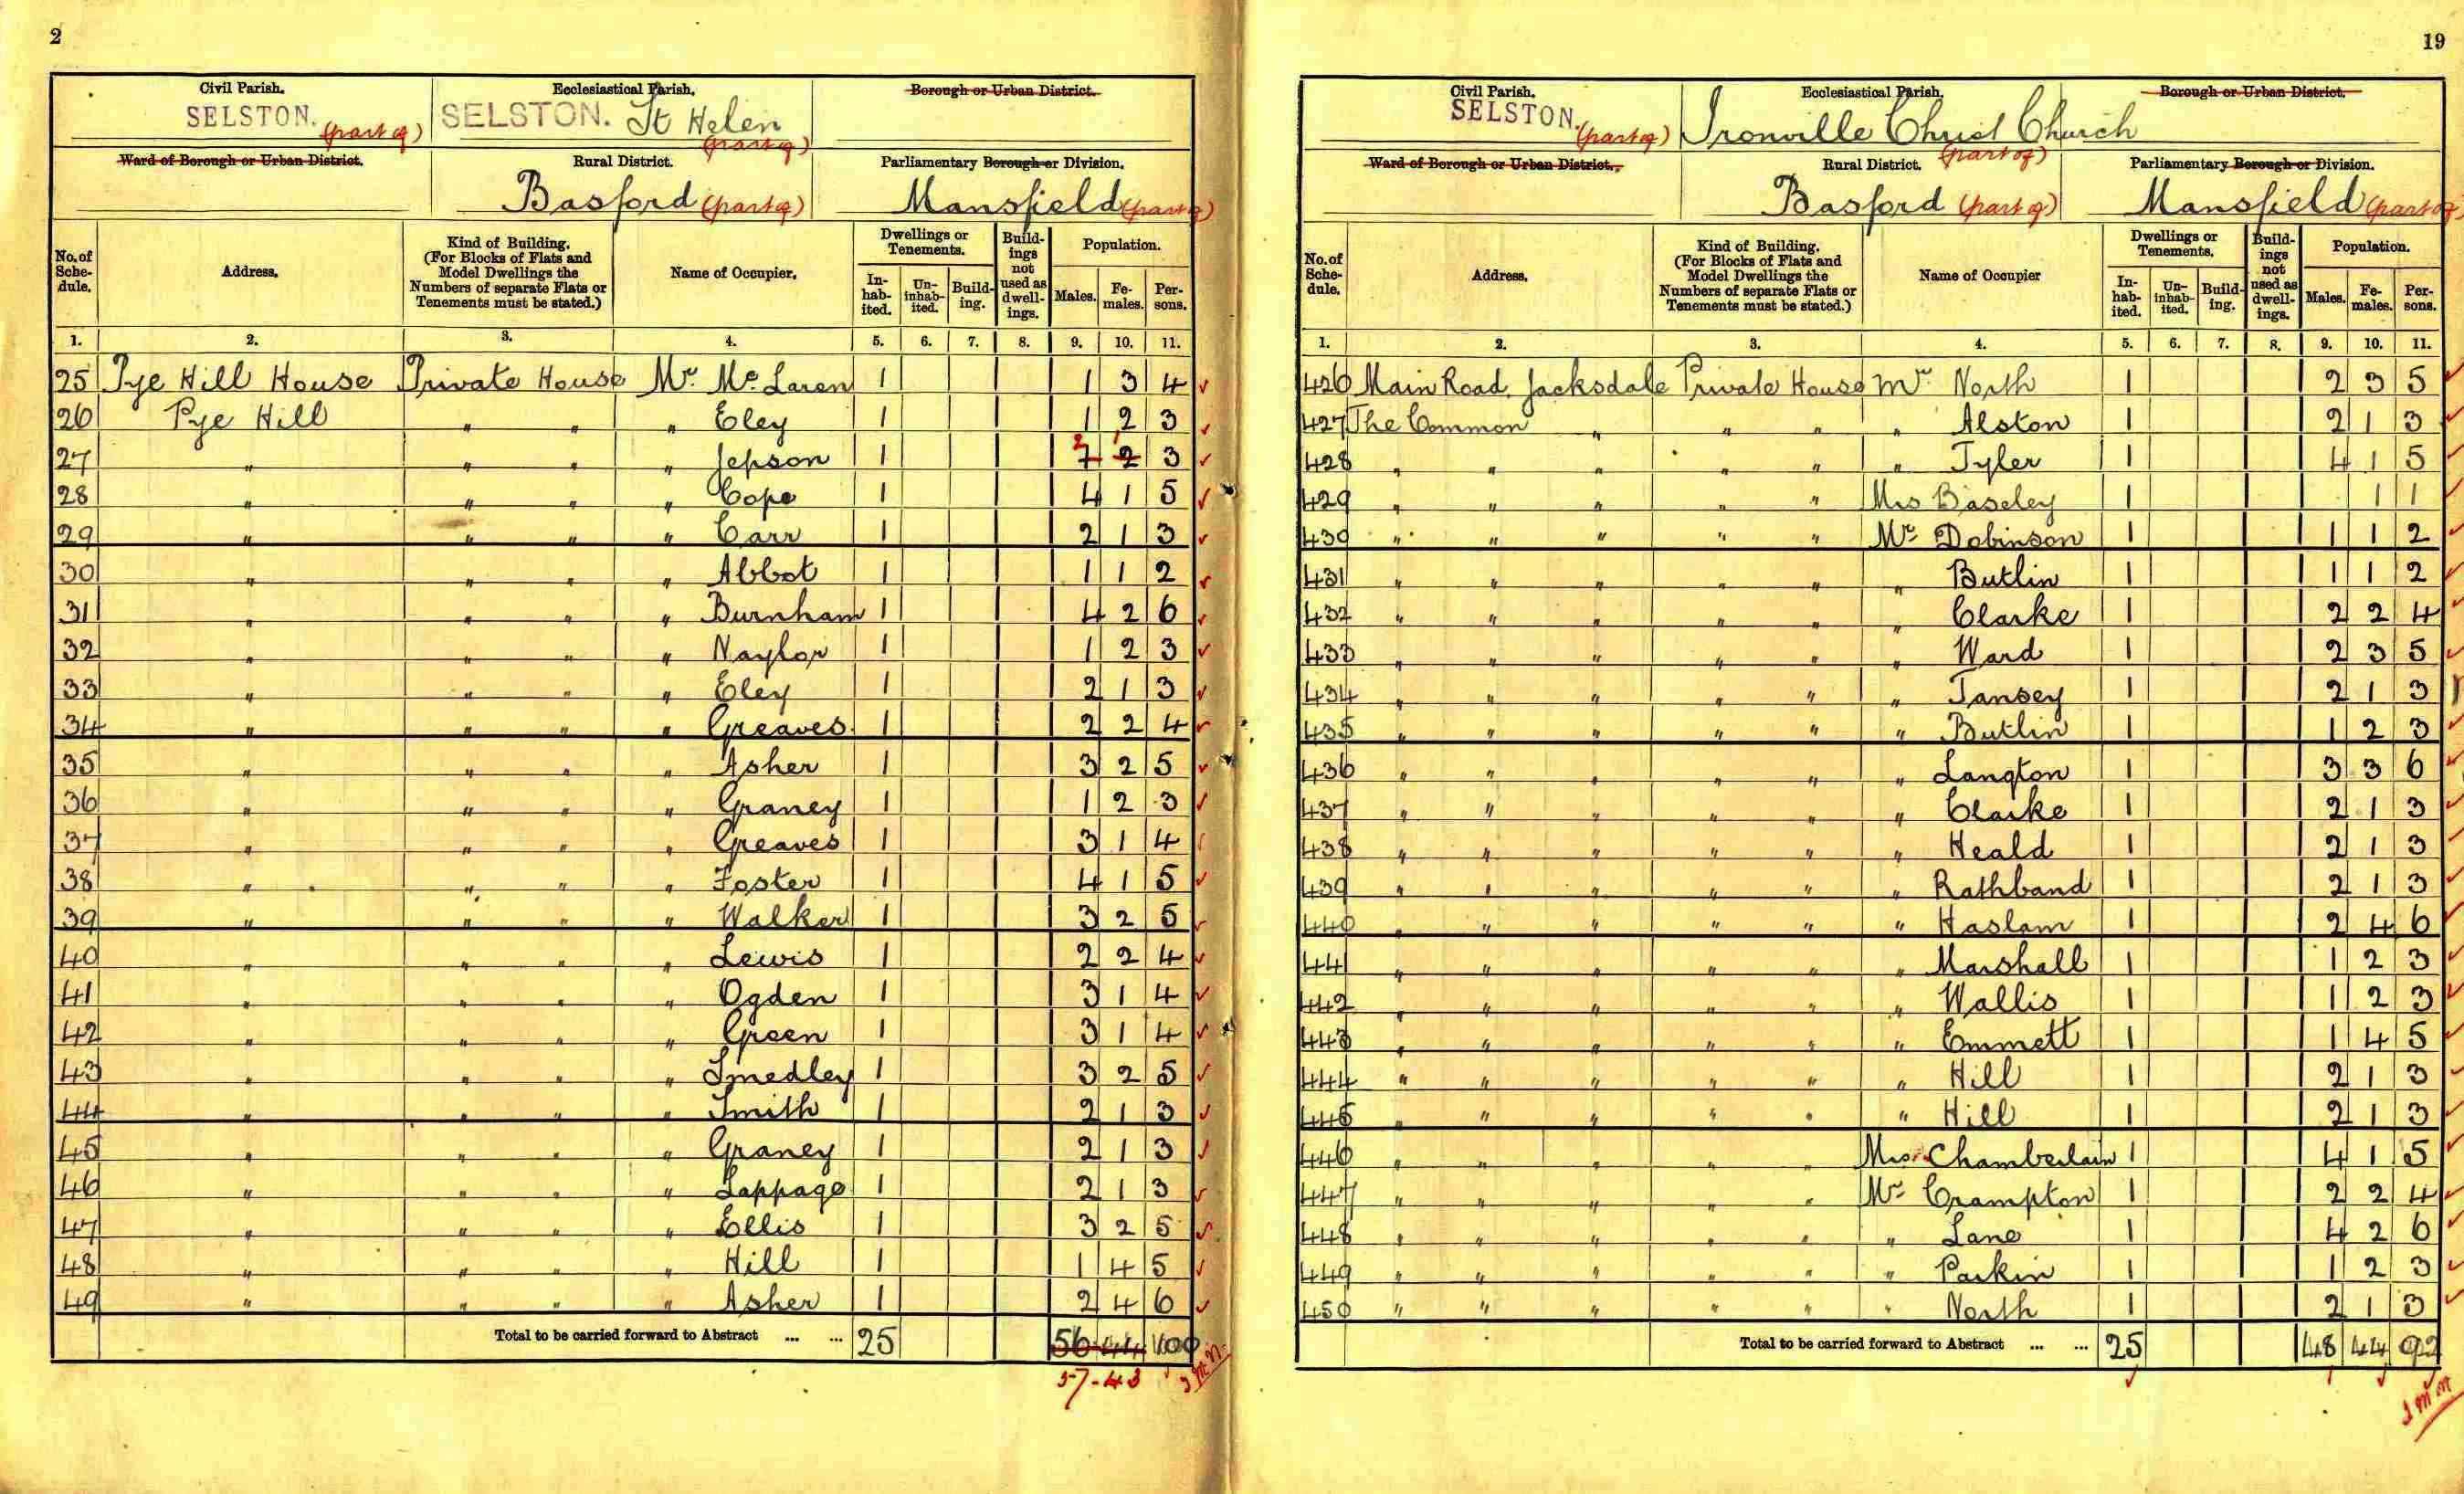 2
Civil Parish.
SELSTON. (part of)
Ecclesiastical Parish.
SELSTON. St Helen
(part of)
Borough or Urban District.
Ward of Borough or Urban District.
Rural District.
Basford (part of)
Parliamentary Borough or Division.
Mansfield (part of)
No. of Schedule. Address. Kind of Building. (For Blocks of Flats and Model Dwellings the Numbers of separate Flats or Tenements must be stated.) Name of Occupier. Dwellings or Tenements. Inhabited. Uninhabited. Building. Buildings not used as dwellings. Population. Males. Females. Persons.
1. 2. 3. 4. 5. 6. 7. 8. 9. 10. 11.
25 Pye Hill House Private House Mr. Mc. Laren 1 1 3 4
26 Pye Hill " " " Eley 1 1 2 3
2 1
27 " " " " Jepson 1 1 2 3
28 " " " " Cope 1 4 1 5
29 " " " " Carr 1 2 1 3
30 " " " " Abbot 1 1 1 2
31 " " " " Burnham 1 4 2 6
32 " " " " Naylor 1 1 2 3
33 " " " " Eley 1 2 1 3
34 " " " " Greaves 1 2 2 4
35 " " " " Asher 1 3 2 5
36 " " " " Graney 1 1 2 3
37 " " " " Greaves 1 3 1 4
38 " " " " Foster 1 4 1 5
39 " " " " Walker 1 3 2 5
40 " " " " Lewis 1 2 2 4
41 " " " " Ogden 1 3 1 4
42 " " " " Green 1 3 1 4
43 " " " " Smedley 1 3 2 5
44 " " " " Smith 1 2 1 3
45 " " " " Graney 1 2 1 3
46 " " " " Lappage 1 2 1 3
47 " " " " Ellis 1 3 2 5
48 " " " " Hill 1 1 4 5
49 " " " " Asher 1 2 4 6
Total to be carried forward to Abstract ... ... 25 56 44 100
57 - 43
19
Civil Parish.
SELSTON. (part of)
Ecclesiastical Parish.
Ironville Christ Church
(part of)
Borough or Urban District.
Ward of Borough or Urban District.
Rural District.
Basford (part of)
Parliamentary Borough or Division.
Mansfield (part of)
No. of Schedule. Address. Kind of Building. (For Blocks of Flats and Model Dwellings the Numbers of separate Flats or Tenements must be stated.) Name of Occupier Dwellings or Tenements. Inhabited. Uninhabited. Building. Buildings not used as dwellings. Population. Males. Females. Persons.
1. 2. 3. 4. 5. 6. 7. 8. 9. 10. 11.
426 Main Road, Jacksdale Private House Mr North 1 2 3 5
427 The Common " " " " Alston 1 2 1 3
428 " " " " " " Tyler 1 4 1 5
429 " " " " " Mrs Baseley 1 1 1
430 " " " " " Mr Dobinson 1 1 1 2
431 " " " " " " Butlin 1 1 1 2
432 " " " " " " Clarke 1 2 2 4
433 " " " " " " Ward 1 2 3 5
434 " " " " " " Tansey 1 2 1 3
435 " " " " " " Butlin 1 1 2 3
436 " " " " " " Langton 1 3 3 6
437 " " " " " " Clarke 1 2 1 3
438 " " " " " " Heald 1 2 1 3
439 " " " " " " Rathband 1 2 1 3
440 " " " " " " Haslam 1 2 4 6
441 " " " " " " Marshall 1 1 2 3
442 " " " " " " Wallis 1 1 2 3
443 " " " " " " Emmett 1 1 4 5
444 " " " " " " Hill 1 2 1 3
445 " " " " " " Hill 1 2 1 3
446 " " " " " Mrs Chamberlain 1 4 1 5
447 " " " " " Mr Crampton 1 2 2 4
448 " " " " " " Lane 1 4 2 6
449 " " " " " " Parkin 1 1 2 3
450 " " " " " " North 1 2 1 3
Total to be carried forward to Abstract ... ... 25 48 44 92